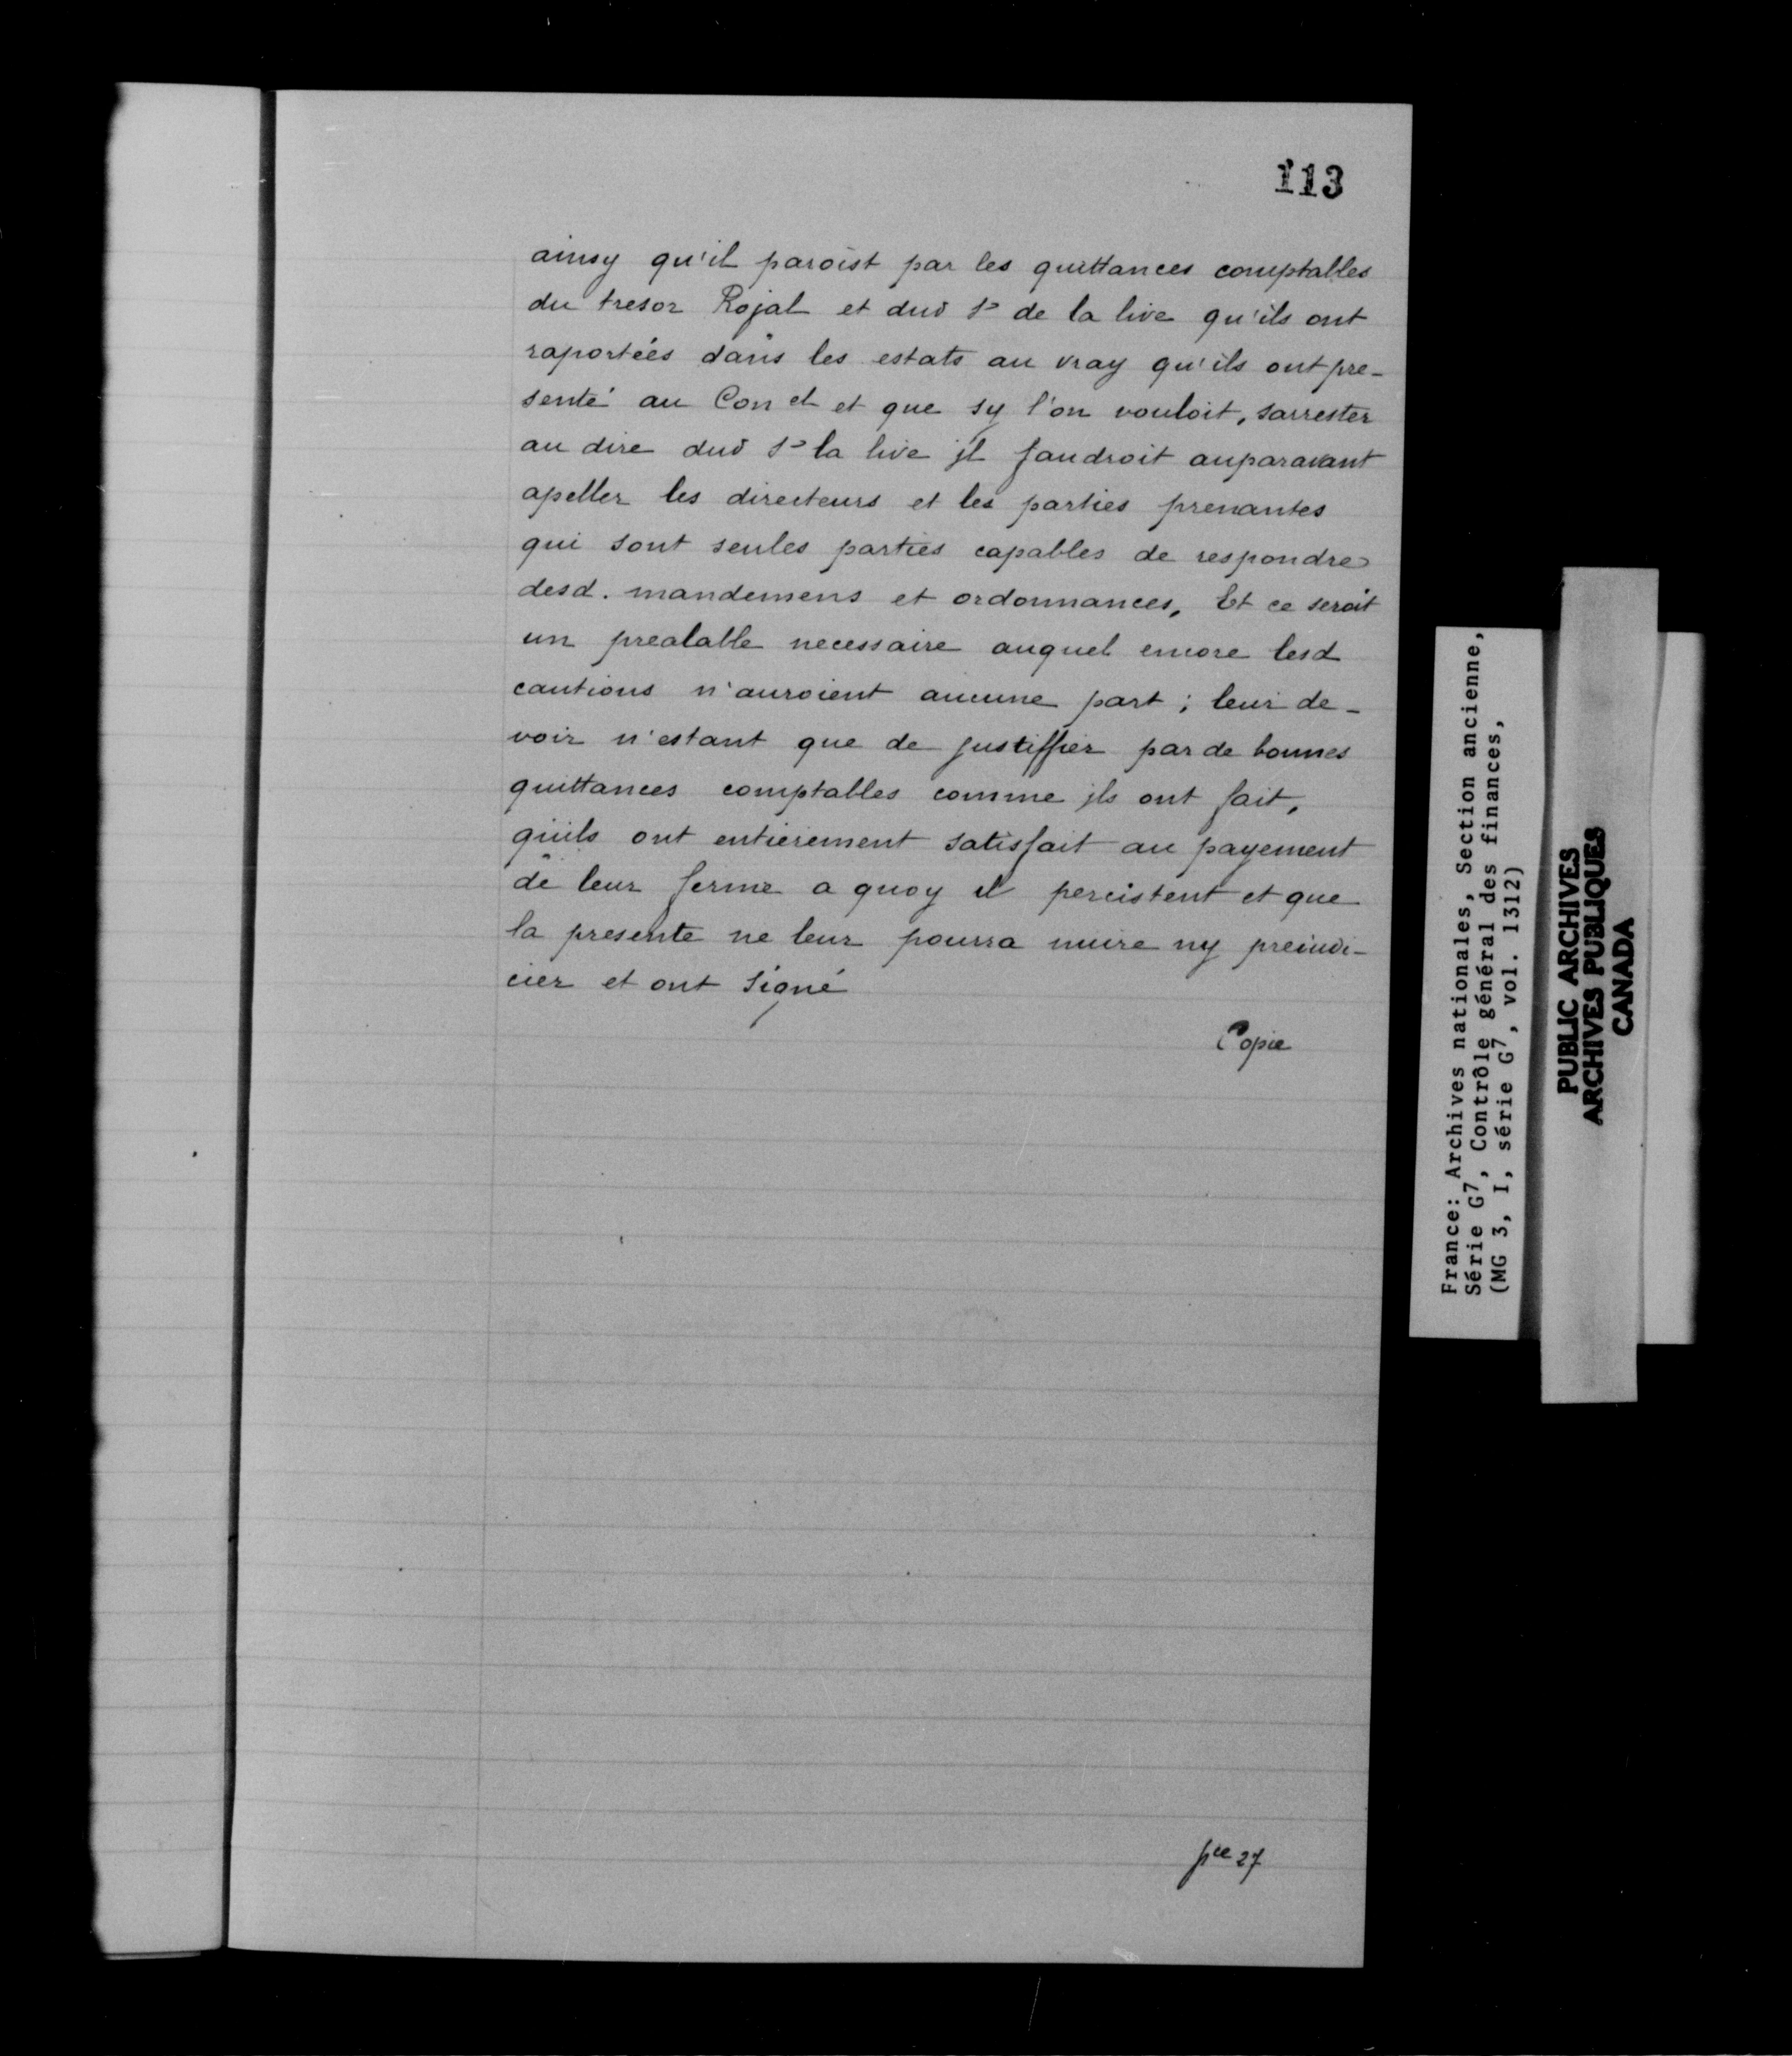 113
ainsy qu'il paroist par les quittances comptables
du tresor Rojal et dud Sr de la live qu'ils ont
raportées dans les estats au vray qu'ils ont pre-
senté au Con el et que sy l'on vouloit, sarrester
au dire dud Sr la live jl faudroit auparavant
apeller les directeurs et les parties prenantes
qui sont seules parties capables de respondre
desd. mandemens et ordonnances, Et ce seroit
un prealable necessaire auquel encore lesd
cautions n'auroient aucune part; leur de-
voir n'estant que de justiffier par de bonnes
quittances comptables comme jls ont fait,
qu'ils ont entierement satisfait au payement
de leur ferme a quoy il percistent et que
la presente ne leur pourra nuire ny preiudi-
cier et ont signé
Copie
pce 27
France: Archives nationales, Section ancienne,
Série G7, Contrôle général des finances,
(MG 3, I, série G7, vol. 1312)
PUBLIC ARCHIVES
ARCHIVES PUBLIQUES
CANADA